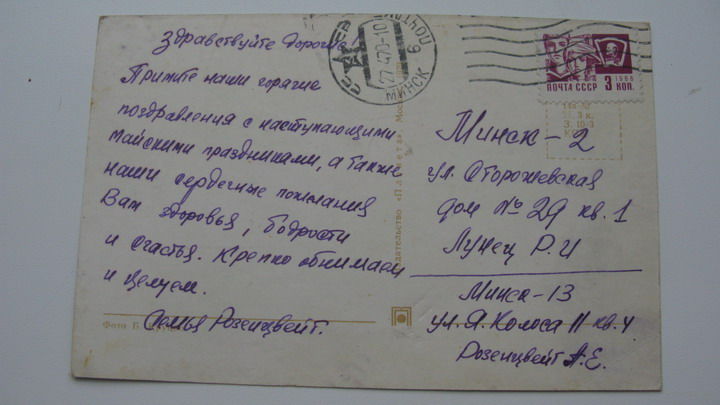 Здравствуйте дорогие
Примите наши горячие
поздравления с наступающими
майскими праздниками, а также
наши сердечные пожелания
Вам здоровья, бодрости
и счастья. Крепко обнимаем
и целуем.
Семья Розенцвейг.
Фото Б.
Издательство «Планета» Москва
ПОЧТАМТ
27 4 70-10
МИНСК
6
ПОЧТА СССР 3 КОП.
1966
Минск-2
ул. Сторожевская
дом № 29 кв. 1
Лунец Р.И
Минск-13
ул. Я. Коласа 11 кв. 4
Розенцвейг А.Е.